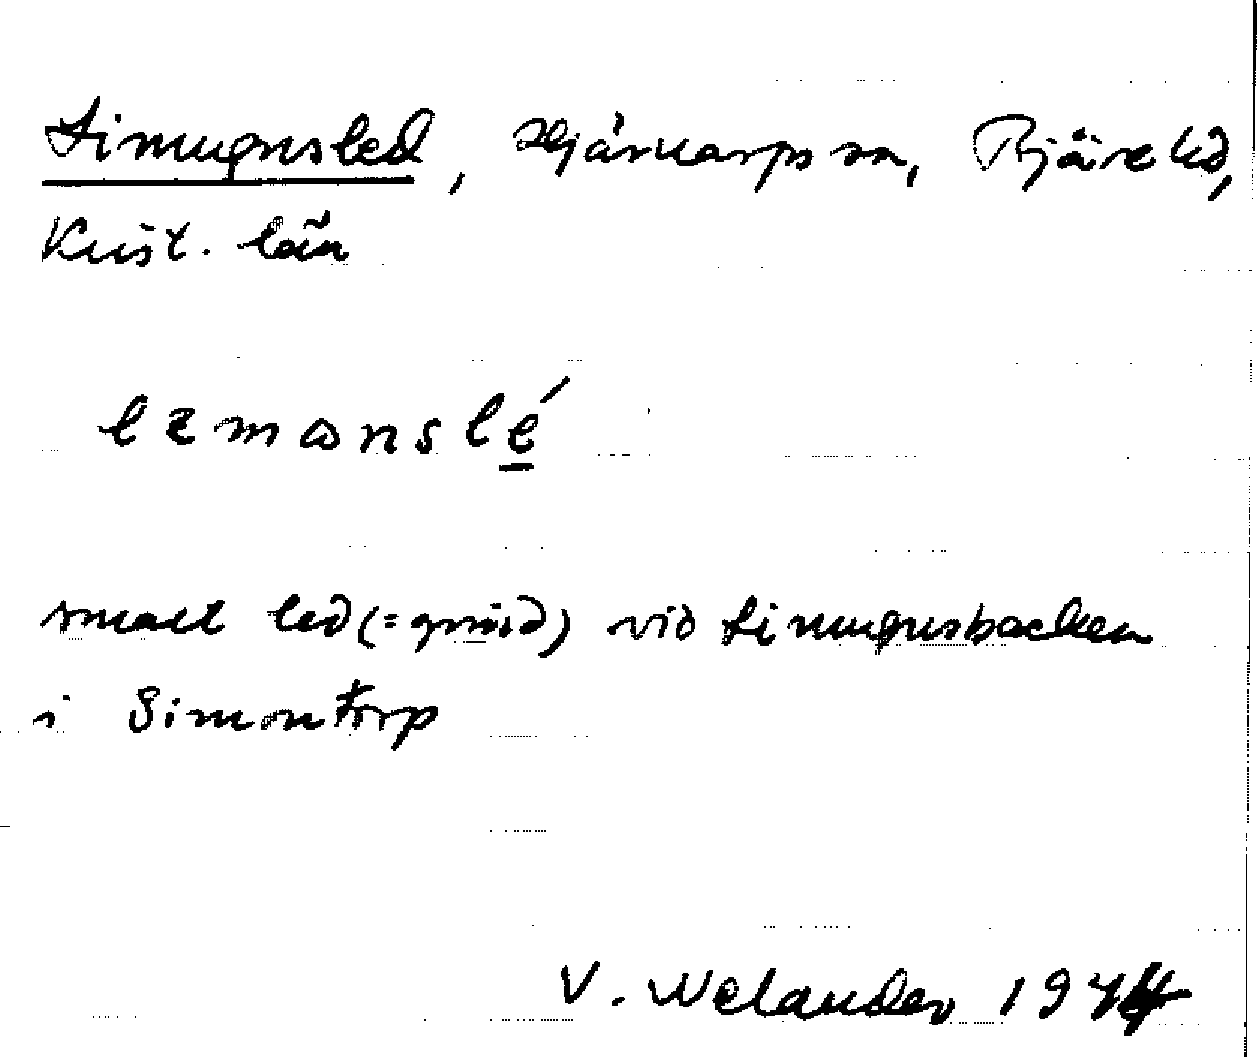 Limugnsled, Hjärnarps sn, Bjäre hd,
Krist. län
smalt led (= grind) vid Limugnsbacken
i Simontorp
V. Welander 1974